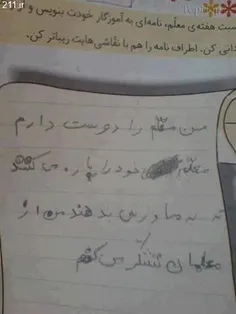 211.ir
سبت هفته‌ی معلّم، نامه‌ای به آموزگار خودت بنویس و
دانی کن. اطراف نامه را هم با نقّاشی‌هایت زیباتر کن.
من معلّم را دوست دارم
معلّم خود را پاره می کنند
که به ما درس بدهند من از
معلمان تشکر می کنم